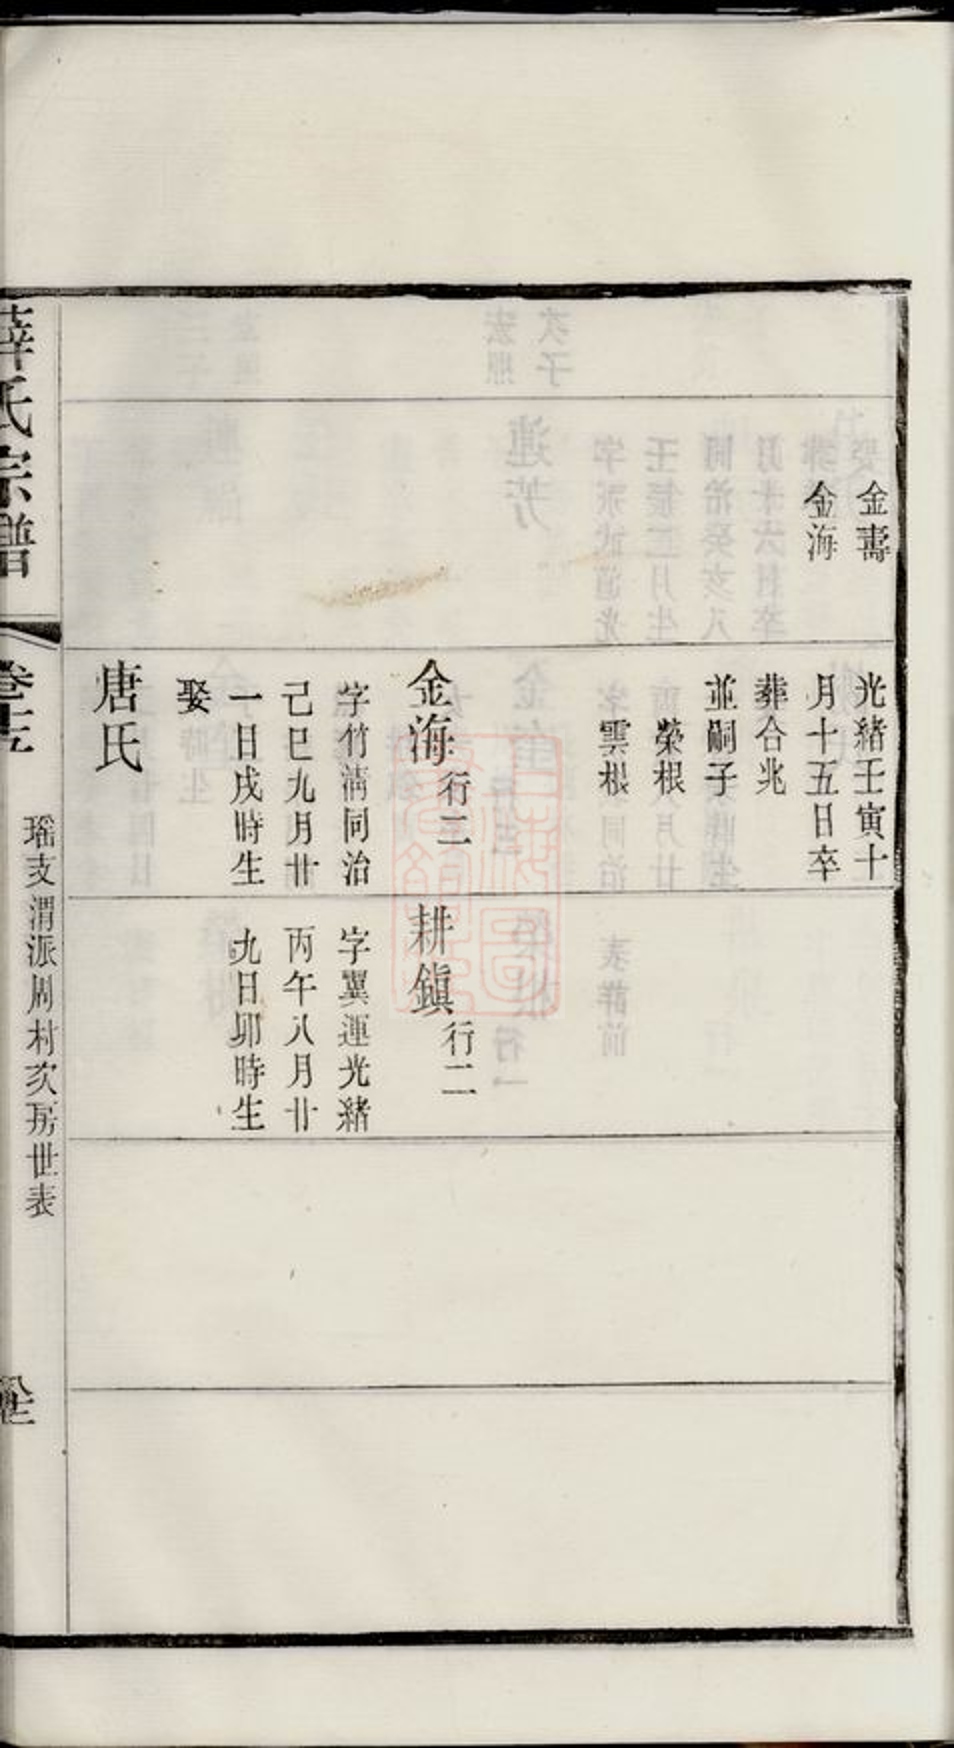 金壽
金海
光緒壬寅十
月十五日卒
葬合兆
並嗣子
榮根
雲根
金海行二
字竹漪同治
己巳九月廿
一日戌時生
娶
唐氏
耕鎭行二
字翼運光緒
丙午八月廿
九日卯時生
薛氏宗譜
瑶支渭派周村次房世表